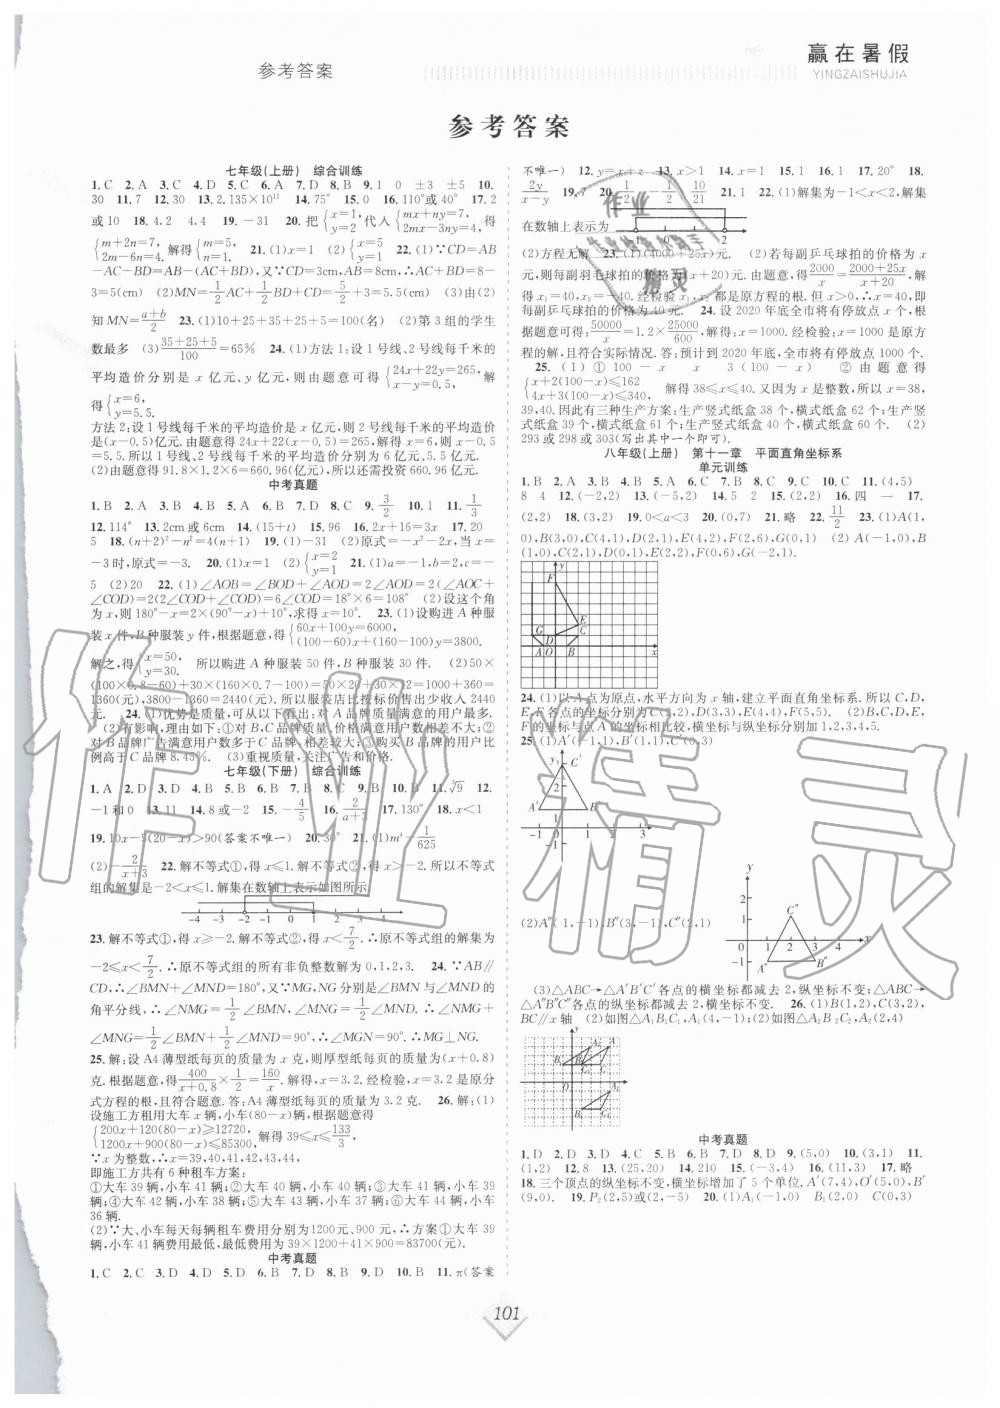 参考答案
赢在暑假
YINGZAISHUJIA
参考答案
七年级(上册) 综合训练
1.C 2.A 3.C 4.D 5.C 6.A 7.D 8.B 9.1 0 ±3 ±5 10.
30 11.7 12.30 13.2.135×10¹¹ 14.75° 15.0 16.110°或40° 17.2
或10 18.4.2 4.4 19.-31 20.把{x=1,y=2 代入{mx+ny=7,2mx-3my=4,得
{m+2n=7,2m-6n=4. 解得{m=5,n=1. 21.(1)x=1 (2){x=5 22.(1)∵CD=AB
-AC-BD=AB-(AC+BD),又∵CD=3cm,AB=8cm,∴AC+BD=8-
3=5(cm) (2)MN=1/2AC+1/2BD+CD=5/2+3=5.5(cm) (3)由(2)
知MN=(a+b)/2 23.(1)10+25+35+25+5=100(名) (2)第3组的学生
数最多 (3)(35+25+5)/100=65% 24.(1)方法1:设1号线、2号线每千米的
平均造价分别是x亿元、y亿元,则由题意可得{24x+22y=265,x-y=0.5. 解
得{x=6,y=5.5.
方法2:设1号线每千米的平均造价是x亿元,则2号线每千米的平均造价
是(x-0.5)亿元.由题意得24x+22(x-0.5)=265,解得x=6.则x-0.5
=5.5.所以1号线、2号线每千米的平均造价分别为6亿元、5.5亿元.
(2)由题意得91.8×1.2×6=660.96(亿元),所以还需投资660.96亿元.
中考真题
1.B 2.A 3.B 4.C 5.A 6.B 7.D 8.C 9.3/2 10.1 11.1/3
12.114° 13.2cm或6cm 14.(15+t) 15.96 16.2x+16=3x 17.20
5 18.(n+2)²-n²=4(n+1) 19.(1)-31 (2)原式=-x²-2x,当x=
-3时,原式=-3. 20.(1)x=10 (2){x=2 21.(1)a=-1,b=2,c=-
5 (2)20 22.(1)∠AOB=∠BOD+∠AOD=2∠AOD=2(∠AOC+
∠COD)=2(2∠COD+∠COD)=6∠COD=18×6=108° (2)设这个角
为x,则180°-x=2×(90°-x)+10°,求得x=10°. 23.(1)设购进A种服
装x件,B种服装y件,根据题意,得{60x+100y=6000,(100-60)x+(160-100)y=3800.
解之,得{x=50,y=30. 所以购进A种服装50件,B种服装30件. (2)50×
(100×0.8-60)+30×(160×0.7-100)=50×20+30×12=1000+360=
1360(元),3800-1360=2440(元).所以服装店比按标价售出少收入2440
元. 24.(1)优势是质量,可以看出:对A品牌质量满意的用户最多.
(2)有影响,理由如下:①对B、C品牌质量、价格满意的用户相差不大;②
对B品牌广告满意用户数多于C品牌,相差较大;③购买B品牌的用户比
例高于C品牌8.45%. (3)重视质量,关注广告和价格.
七年级(下册) 综合训练
1.A 2.D 3.D 4.B 5.C 6.A 7.C 8.D 9.C 10.B 11.√9 12.
-1和0 13.11 14.8或-2 15.-4/5 16.2/(a+3) 17.130° 18.x<1
19.10x-5(20-x)>90(答案不唯一) 20.30° 21.(1)m⁴-1/625
(2)-2/(x+3) 22.解不等式①,得x≤1.解不等式②,得x>-2.所以不等式
组的解集是-2<x≤1.解集在数轴上表示如图所示
-4 -3 -2 -1 0 1 2 3 4
23.解不等式①,得x≥-2.解不等式②,得x<7/2.∴原不等式组的解集为
-2≤x<7/2.∴原不等式组的所有非负整数解为0,1,2,3. 24.∵AB∥
CD,∴∠BMN+∠MND=180°,又∵MG,NG分别是∠BMN与∠MND的
角平分线,∴∠NMG=1/2∠BMN,∠MNG=1/2∠MND.∴∠NMG+
∠MNG=1/2∠BMN+1/2∠MND=90°.∴∠MGN=90°.∴MG⊥NG.
25.解:设A4薄型纸每页的质量为x克,则厚型纸每页的质量为(x+0.8)
克.根据题意,得400/(x+0.8)×1/2=160/x.解得:x=3.2.经检验,x=3.2是原分
式方程的根,且符合题意.答:A4薄型纸每页的质量为3.2克. 26.解:(1)
设施工方租用大车x辆,小车(80-x)辆,根据题意得
{200x+120(80-x)≥12720,1200x+900(80-x)≤85300, 解得39≤x≤133/3,
∵x为整数,∴x=39,40,41,42,43,44.
即施工方共有6种租车方案:
①大车39辆,小车41辆;②大车40辆,小车40辆;③大车41辆,小车39
辆;④大车42辆,小车38辆;⑤大车43辆,小车37辆;⑥大车44辆,小车
36辆.
(2)∵大、小车每天每辆租车费用分别为1200元、900元,∴方案①大车39
辆,小车41辆费用最低,最低费用为39×1200+41×900=83700(元).
中考真题
1.C 2.C 3.D 4.D 5.D 6.B 7.D 8.B 9.D 10.B 11.π(答案
不唯一) 12.y=x+z 13.x>1 14.x=2 15.1 16.1 17.20° 18.
2y/(x-y) 19.7 20.1/2 -1/2 10/21 21.1 22.(1)解集为-1<x<2,解集
在数轴上表示为 -1 0 2
(2)方程无解 23.(1)(4000+25x) (2)设每副乒乓球拍的价格为x
元,则每副羽毛球拍的价格为(x+20)元.由题意,得2000/x=(2000+25x)/(x+20),解
得x₁=40,x₂=-40.经检验x₁,x₂都是原方程的根.但x>0,∴x=40,即
每副乒乓球拍的价格为40元. 24.设2020年底全市将有停放点x个,根
据题意可得:50000/x=1.2×25000/600,解得:x=1000.经检验:x=1000是原方
程的解,且符合实际情况.答:预计到2020年底,全市将有停放点1000个.
25.(1)①100-x x 3(100-x) ②由题意得
{x+2(100-x)≤162,4x+3(100-x)≤340, 解得38≤x≤40.又因为x是整数,所以x=38,
39,40.因此有三种生产方案:生产竖式纸盒38个,横式纸盒62个;生产竖
式纸盒39个,横式纸盒61个;生产竖式纸盒40个,横式纸盒60个. (2)
293或298或303(写出其中一个即可).
八年级(上册) 第十一章 平面直角坐标系
单元训练
1.B 2.A 3.D 4.B 5.C 6.C 7.B 8.C 9.C 10.C 11.(4,5)
8 4 12.(-2,2) 13.(-5,2) 14.5 2 15.(2,2) 16.四 一 17.
(2,2) 18.(3,2) 19.0<a<3 20.(0,7) 21.略 22.11/2 23.(1)A(1,
0),B(3,0),C(4,1),D(2,1),E(4,2),F(2,6),G(0,1) (2)A(-1,0),B
(1,0),C(2,1),D(0,1),E(2,2),F(0,6),G(-2,1).
y F E G D C A O B x
24.(1)以A点为原点,水平方向为x轴,建立平面直角坐标系.所以C,D,
E,F各点的坐标分别为C(2,2),D(3,3),E(4,4),F(5,5). (2)B,C,D,E,
F的坐标与点A的坐标相比较,横坐标与纵坐标分别加1,2,3,4,5.
25.(1)A′(-1,1),B′(1,1),C′(0,3)
y 3 C′ 2 A′ B′ -1 O 1 2 3 -1
(2)A″(1,-1),B″(3,-1),C″(2,1)
y 2 1 C″ O 1 2 3 4 x -1 A″ B″
(3)△ABC→△A′B′C′各点的横坐标都减去2,纵坐标不变.△ABC→
△A″B″C″各点的纵坐标都减去2,横坐标不变. 26.(1)B(1,2),C(3,2),
BC∥x轴 (2)如图△A₁B₁C₁,A₁(4,-1);(2)如图△A₂B₂C₂,A₂(2,4)
中考真题
1.D 2.D 3.D 4.B 5.C 6.D 7.B 8.D 9.(5,0) 10.(3,1) 11.
(1,2) 12.8 13.(25,20) 14.210 15.(-3,4) 16.(-2,3) 17.略
18.三个顶点的纵坐标不变,横坐标增加了5个单位.A′(4,7),O′(5,0),B′
(9,0). 19.P₂(2,5)或(2,-5) 20.(1)A(-1,0) B(2,0) C(0,3)
101
作业精灵